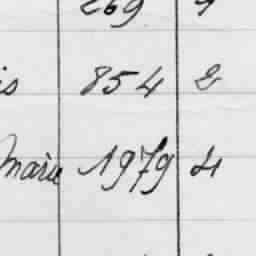 269
is 854 2
Marie 1979 4